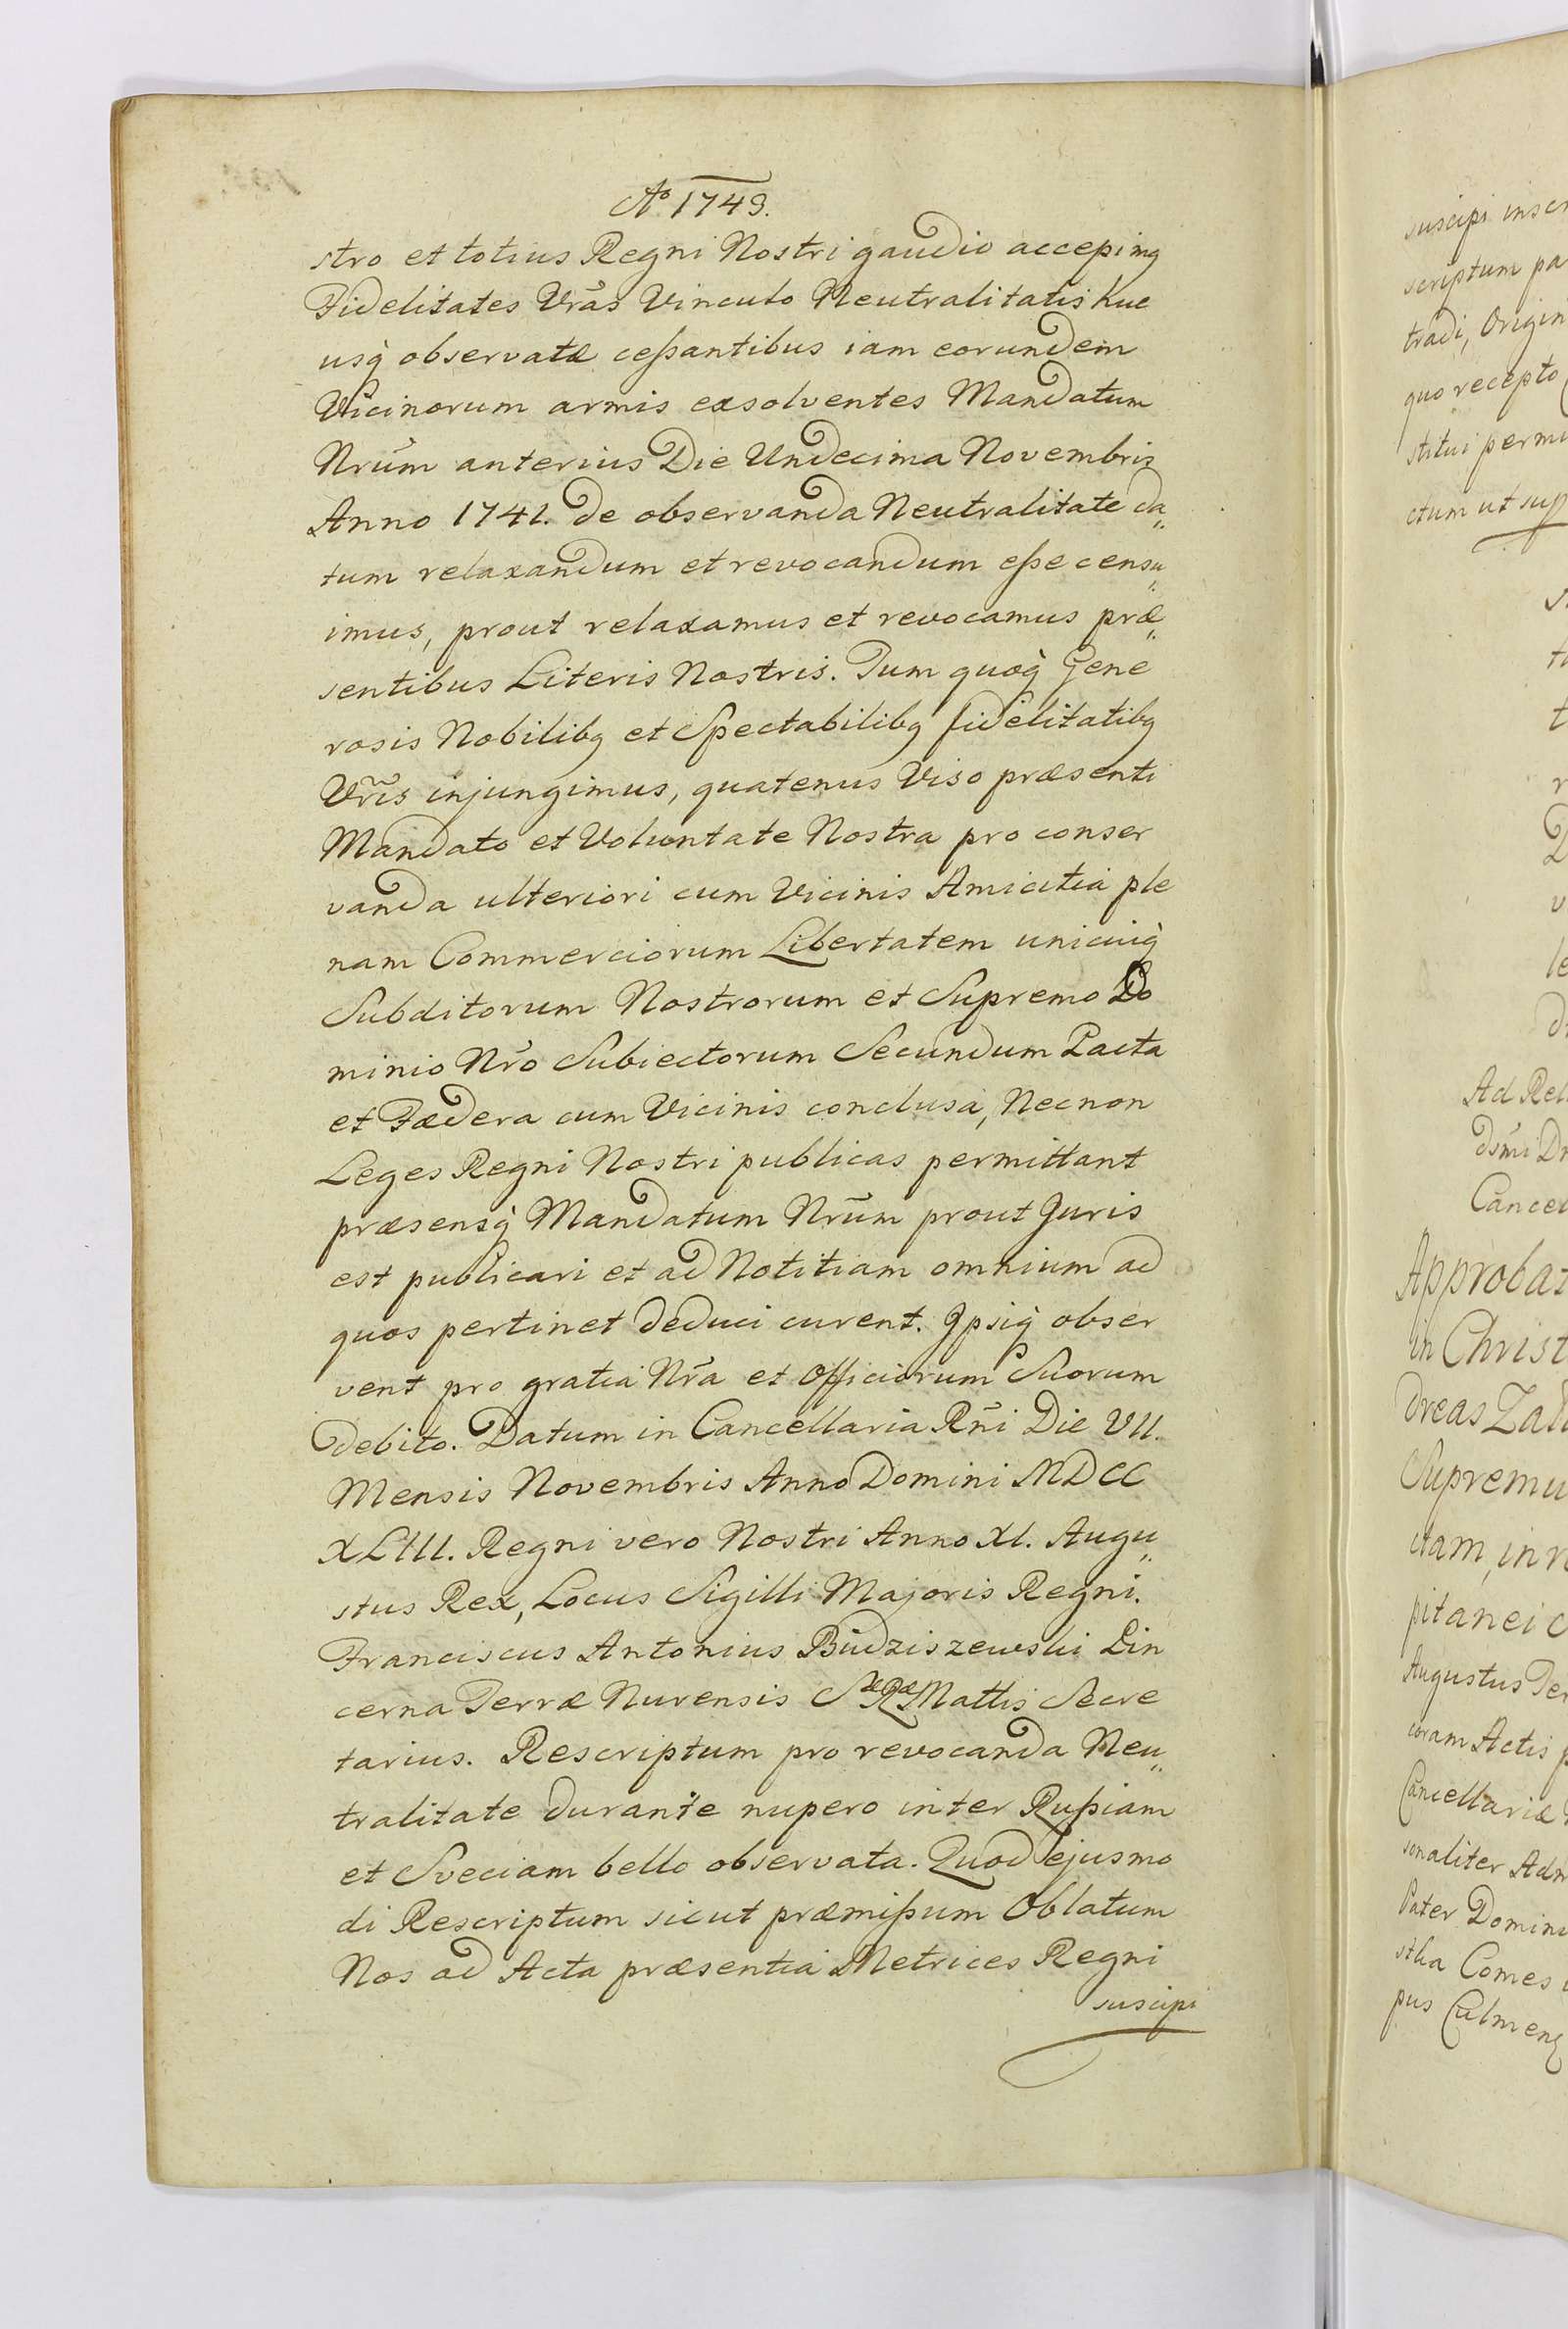 Aº 1743.
stro et totius Regni Nostri gaudio accepimg
Fidelitates Vrãs Vinculo Neutralitatis huc
usq̀ observatæ ceſsantibus iam eorundem
Vicinorum armis exsolventes Mandatum
Nrũm anterius Die Undecima Novembris
Anno 1741. de observanda Neutralitate da„
tum relaxandum et revocandum eſse censu„
imus, prout relaxamus et revocamus præ„
sentibus Literis Nostris. Tum quoq̀ Gene
rosis Nobilibg et Spectabilibg fidelitatibg
Vrĩs injungimus, quatenus Viso præsenti
Mandato et Voluntate Nostra pro conser
vanda ulteriori cum Vicinis Amicitia ple
nam Commerciorum Libertatem unicuiq̀
Subditorum Nostrorum et Supremo Do
minio Nrõ Subiectorum Secundum Pacta
et Fædera cum Vicinis conclusa, Necnon
Leges Regni Nostri publicas permittant
præsensq̀ Mandatum Nrũm prout Juris
est publicari et ad Notitiam omnium ad
quos pertinet deduci curent. Jpsiq̀ obser
vent pro gratia Nrã et Officiorum Suorum
debito. Datum in Cancellaria Rñi Die VII.
Mensis Novembris Anno Domini MDCC
XLIII. Regni vero Nostri Anno XI. Augu„
stus Rex, Locus Sigilli Majoris Regni.
Franciscus Antonius Budziszewski Pin
cerna Terræ Nurensis Sæ Ræ Mattis Secre
tarius. Rescriptum pro revocanda Neu„
tralitate durante nupero inter Ruſsiam
et Sveciam bello observata. Quod ejusmo
di Rescriptum sicut præmiſsum Oblatum
Nos ad Acta præsentia Metrices Regni
suscipi
suscipi
scriptum pa
tradi, Origin
quo recepto
stitui permi
ctum ut sup
Ad Rel
Cancel
Approbat
in Christ
dreas Zal
Supremu
ctam, in
pitanei
Augustus
coram Actis
Cancellariæ
sonaliter Adm
Pater Domin
Comes
pus Culmen